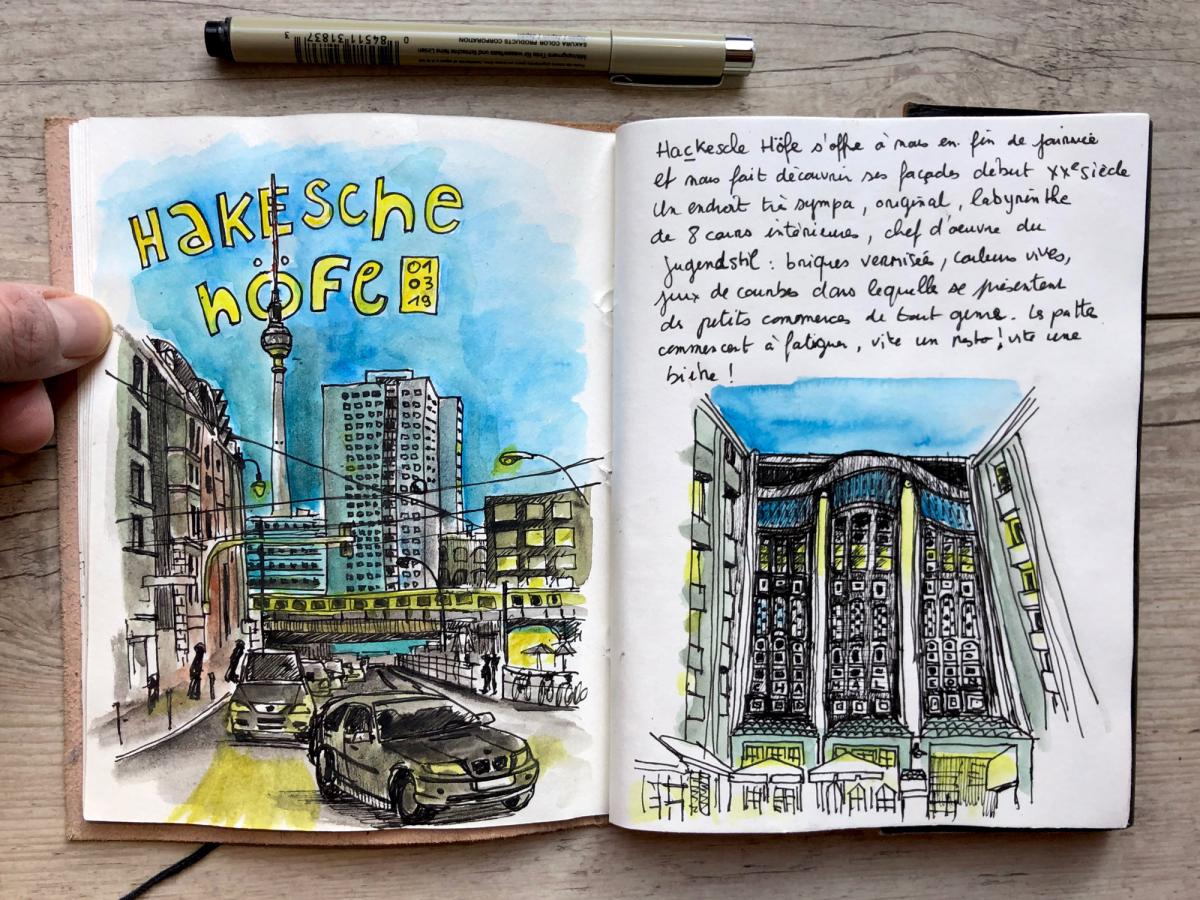 SAKURA COLOR PRODUCTS CORPORATION
0 84511 31837 3
HaKEsche
HöFe
01
03
19
Hackesche Höfe s'offre à nous en fin de journée
et nous fait découvrir ses façades début XXe siècle
Un endroit très sympa, original, labyrinthe
de 8 cours intérieures, chef d'oeuvre du
Jugendstil : briques vernissées, couleurs vives,
jeux de courbes dans lequelle se présentent
des petits commerces de tout genre. Les pattes
commencent à fatiguer, vite un resto ! vite une
bière !